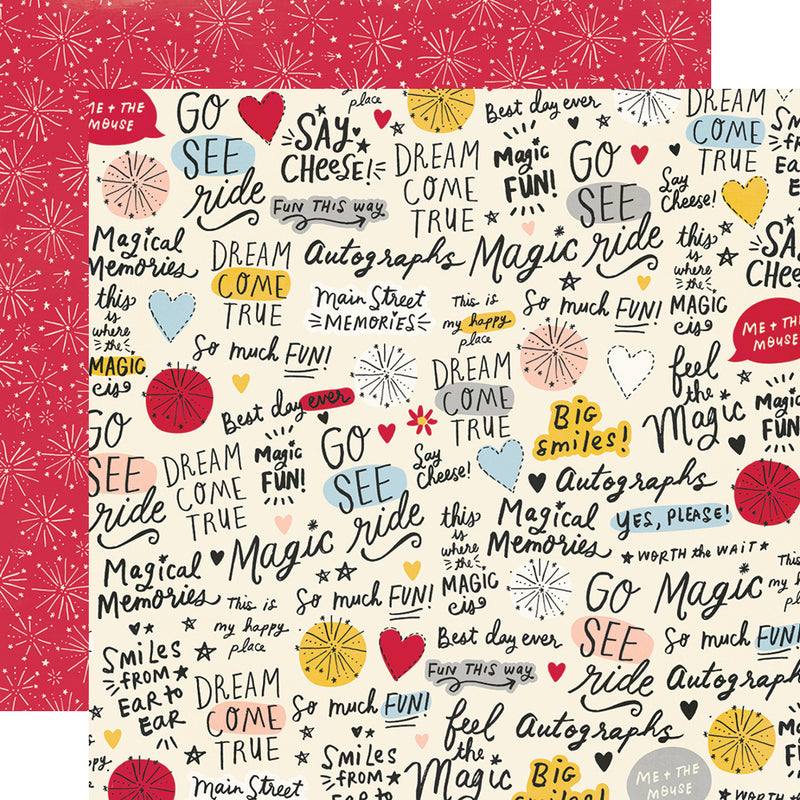 ME + THE
MOUSE
GO
SEE
ride
SAY
CHEESE!
place
FUN THIS way
DREAM
COME
TRUE
Best day ever
Magic
FUN!
GO
SEE
ride
DREAM
COME
TRUE
Say
Cheese!
SMiLES
FROM
EAR to
EAR
Magical
Memories
DREAM
COME
TRUE
Autographs
Magic
this
is
where
the
MAGIC
is
SAY
CHEESE!
this
is
where
the
MAGIC
is
Main Street
MEMORIES
This is
my happy
place
So much FUN!
ME + THE
MOUSE
So much FUN!
DREAM
COME
TRUE
feel
the
Magic
Best day ever
BIG
smiles!
Magic
FUN!
GO
SEE
ride
DREAM
COME
TRUE
Magic
FUN!
GO
SEE
ride
Say
Cheese!
Autographs
Magic
this
is
where
the
MAGIC
is
Magical
Memories
YES, PLEASE!
WORTH the WAIT
Magical
Memories
This is
my happy
place
So much FUN!
GO
SEE
ride
Magic
This
my
Best day ever
So much FUN!
SMiLES
FROM
EAR to
EAR
FUN THIS way
Autographs
DREAM
COME
TRUE
So much FUN!
feel
the
Magic
Autographs
Main Street
SMiLES
FROM
EAR to
BIG
smiles!
ME + THE
MOUSE